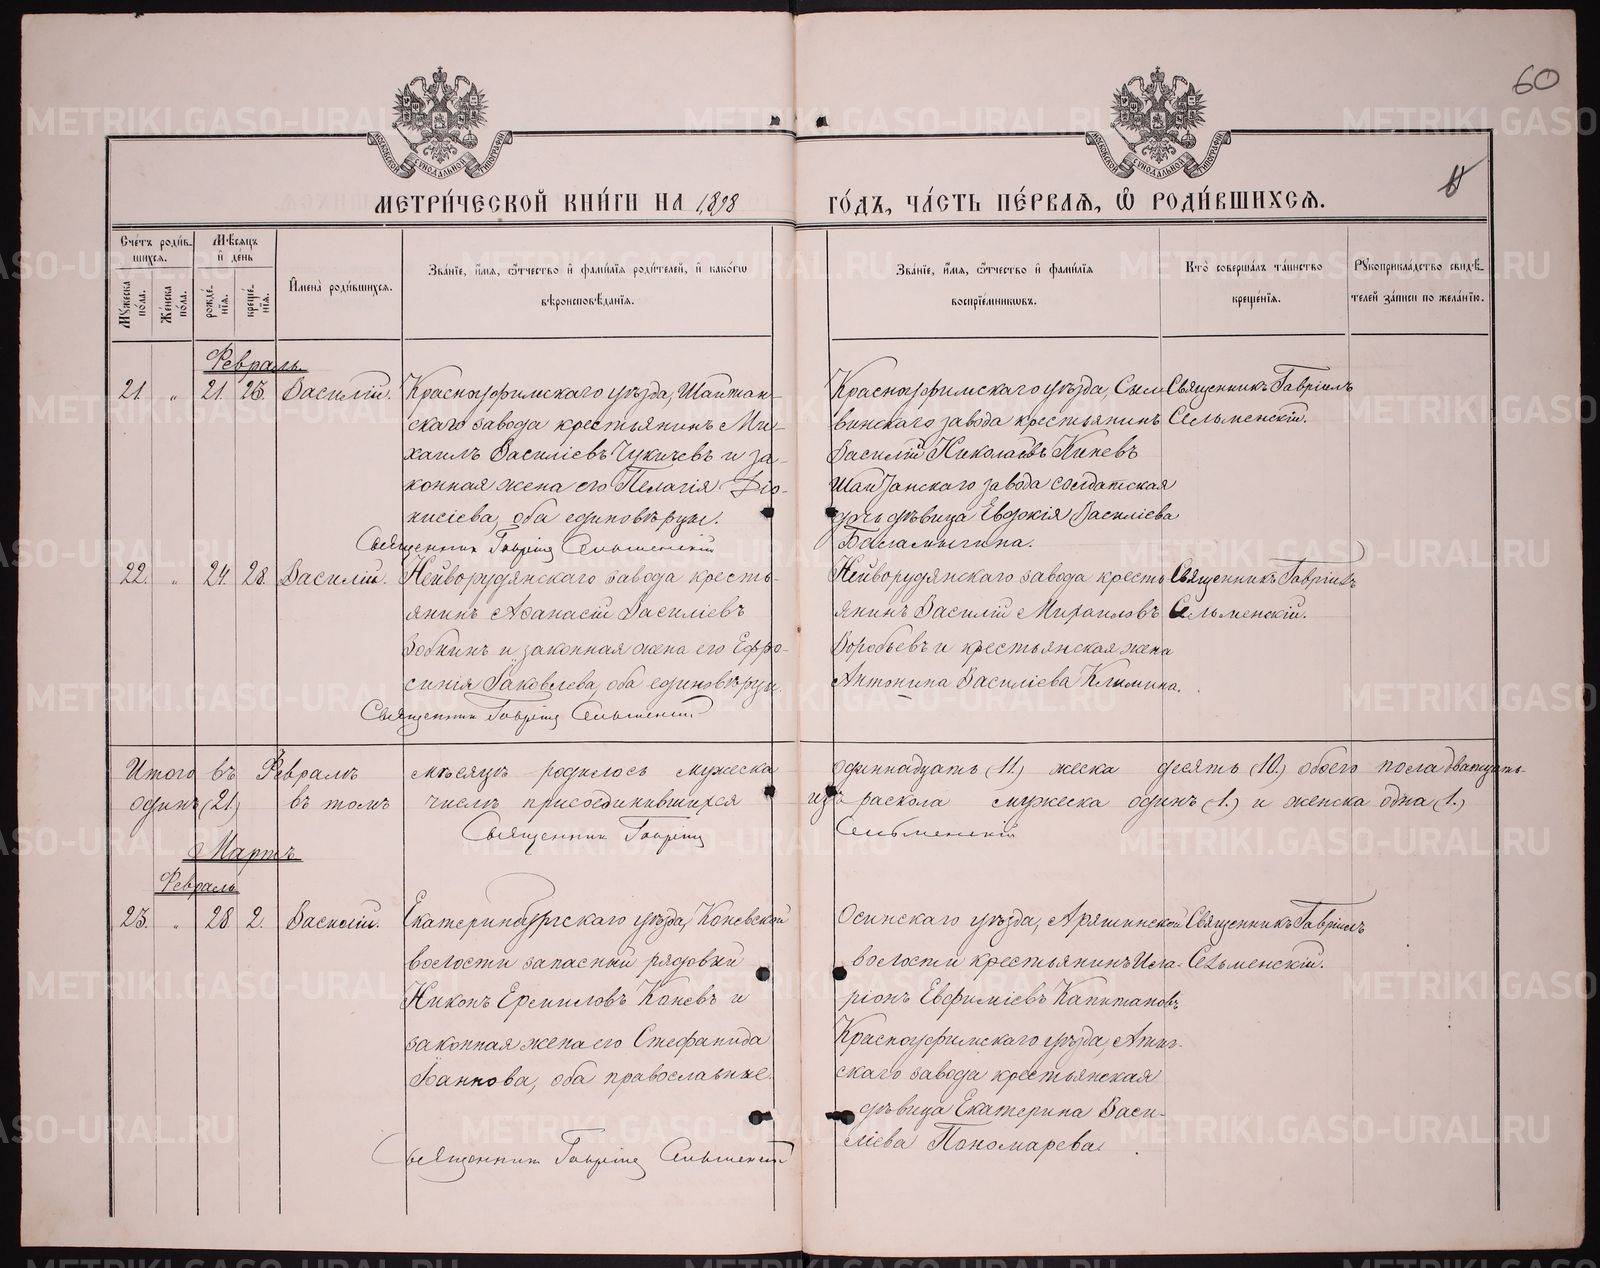 60
МЕТРИ́ЧЕСКОЙ КНИ́ГИ НА 1898 ГО́ДЪ, ЧА́СТЬ ПЕ́РВАѦ, Ѽ РОДИ́ВШИХСѦ.
Сче́тъ роди́в-
шихся.
Мѣ́сяцъ
и҆ де́нь
И҆мена̀ роди́вшихся.
Зва́нїе, и҆́мя, ѻ҆́тчество и҆ фами́лїя роди́телей, и҆ како́гѡ
вѣроисповѣ́данїя.
Зва́нїе, и҆́мя, ѻ҆́тчество и҆ фами́лїя
воспрїе́мниковъ.
Кто̀ соверша́лъ та́инство
креще́нїя.
Рꙋкоприкла́дство свидѣ́-
телей за́писи по жела́нїю.
Мꙋ́жеска по́ла.
Же́нска по́ла.
рожде́-нїя.
креще́-нїя.
Февраль.
21. „ 21. 25. Василій.
Красноуфимскаго уѣзда, Шайтан-
скаго завода крестьянинъ Ми-
хаилъ Василіевъ Чукичевъ и за-
конная жена его Пелагія Діо-
нисіева, оба единовѣрцы.
Священникъ Гавріилъ Сельменскій
Красноуфимскаго уѣзда, Сыл-
винскаго завода крестьянинъ
Василій Николаевъ Кинев
Шайтанскаго завода солдатская
дочь дѣвица Евдокія Василіева
Баламыгина.
Священникъ Гавріилъ
Сельменскій.
22. „ 24. 28. Василій.
Нейворудянскаго завода кресть-
янинъ Аѳанасій Василіевъ
Зобнинъ и законная жена его Ефро-
синія Іаковлева, оба единовѣрцы.
Священникъ Гавріилъ Сельменскій
Нейворудянскаго завода кресть
янинъ Василій Михаиловъ
Воробьевъ и крестьянская жена
Антонина Василіева Климина.
Священникъ Гавріилъ
Сельменскій.
Итого въ Февралѣ мѣсяцѣ родилось мужеска одиннадцать (11.) женска десять (10.) обоего пола двадцать
одинъ (21) въ томъ числѣ присоединившихся изъ раскола мужеска одинъ (1.) и женска одна (1.)
Священникъ Гавріилъ Сельменскій
Мартъ
Февраль
23. „ 28. 2. Василій.
Екатеринбургскаго уѣзда, Коневской
волости запасный рядовый
Никонъ Ермиловъ Коневъ и
законная жена его Стефанида
Іоаннова, оба православные.
Священникъ Гавріилъ Сельменскій
Осинскаго уѣзда, Аряшинской
волости крестьянинъ Ила-
ріонъ Евфиміевъ Капитановъ
Красноуфимскаго уѣзда, Атиг-
скаго завода крестьянская
дѣвица Екатерина Васи-
ліева Пономарева.
Священникъ Гавріилъ
Сельменскій.
METRIKI.GASO-URAL.RU